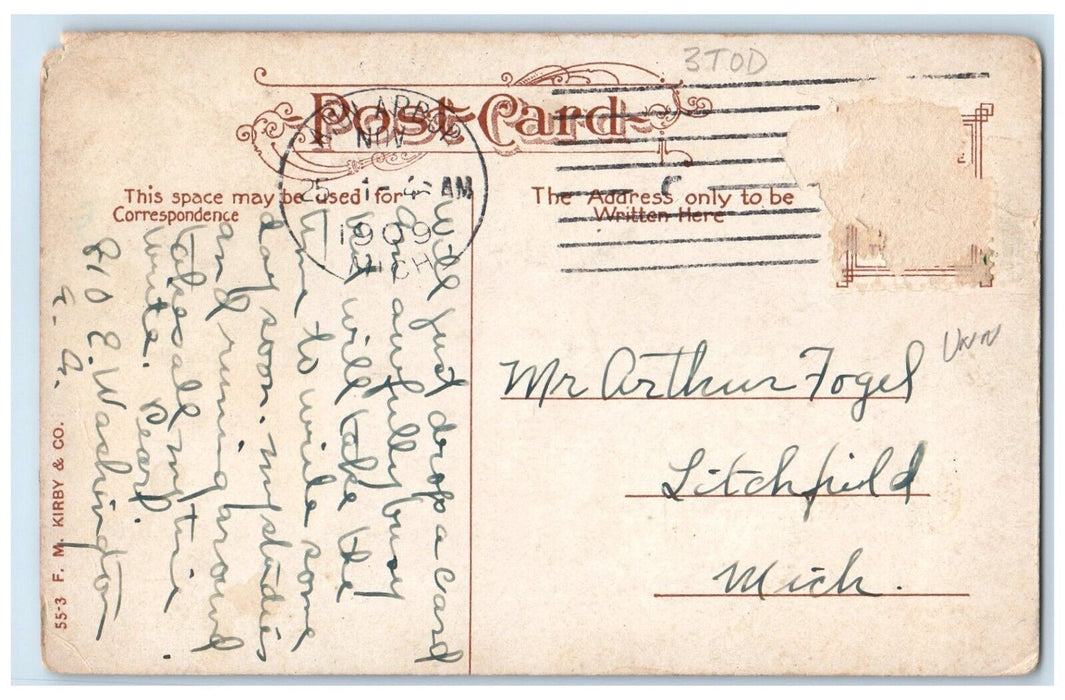 3TOD
Post Card
ARBOR
NOV
25 1-4- AM
1909
MICH
This space may be used for
Correspondence
The Address only to be
Written Here
Will just drop a card
am awfully busy
but will take the
time to write some
day soon. My studies
and running around
take all my time.
write. Pearl.
810 E. Washington
A. A.
Mr Arthur Fogel
Litchfield
Mich.
55-3 F. M. KIRBY & CO.